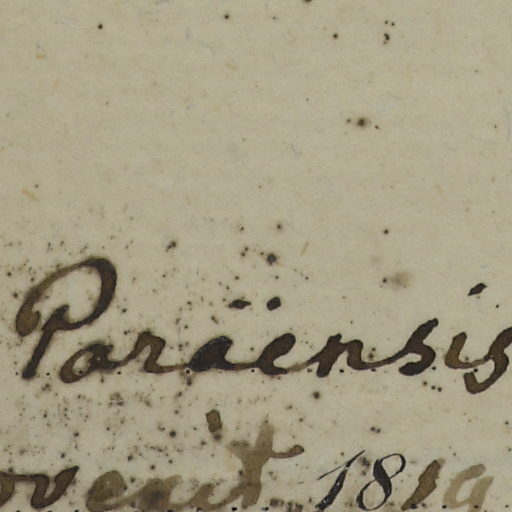 Paräensis
ovenit 1819